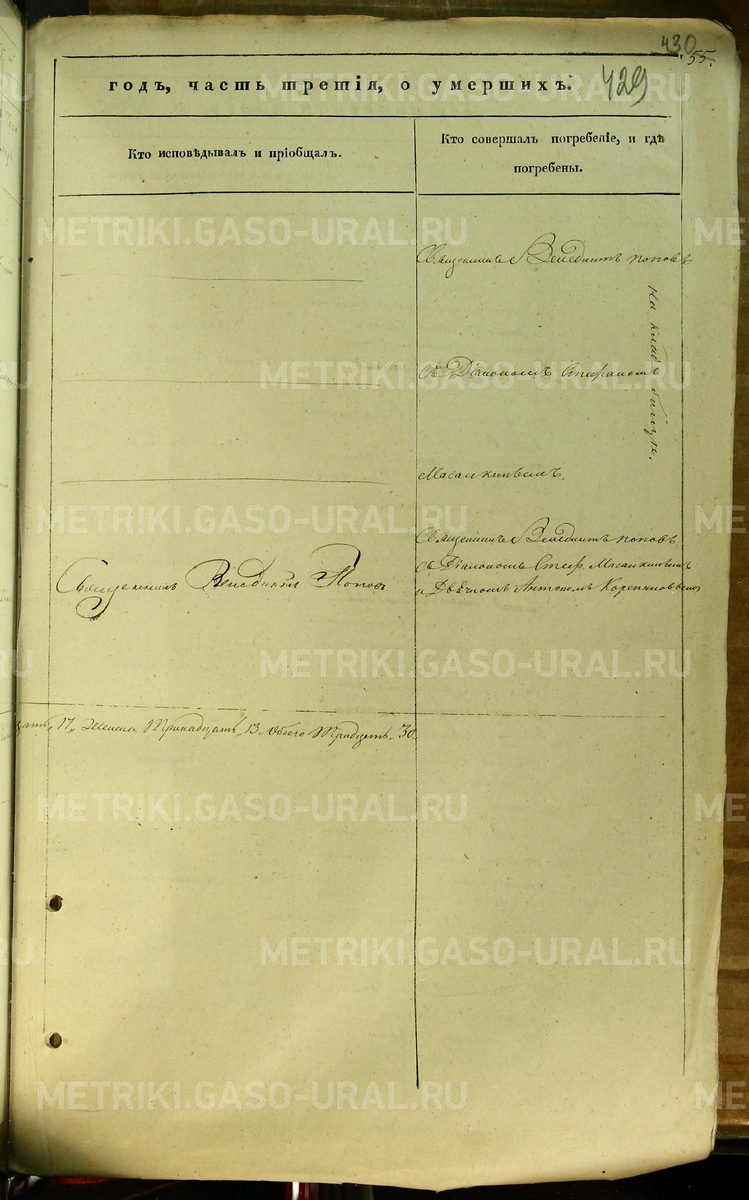 430
55.
годъ, часть третія, о умершихъ.
429
Кто исповѣдывалъ и пріобщалъ.
Кто совершалъ погребеніе, и гдѣ
погребены.
Священникъ Венедиктъ Поповъ
съ Діакономъ Стефаномъ
Масалкинымъ.
на кладбищѣ.
Священникъ Венедиктъ Поповъ
Священникъ Венедиктъ Поповъ
съ Діакономъ Стеф. Масалкинымъ
и Дьячкомъ Антономъ
цать 17, Женска Тринадцать 13, Обоего Тридцать 30.
METRIKI.GASO-URAL.RU